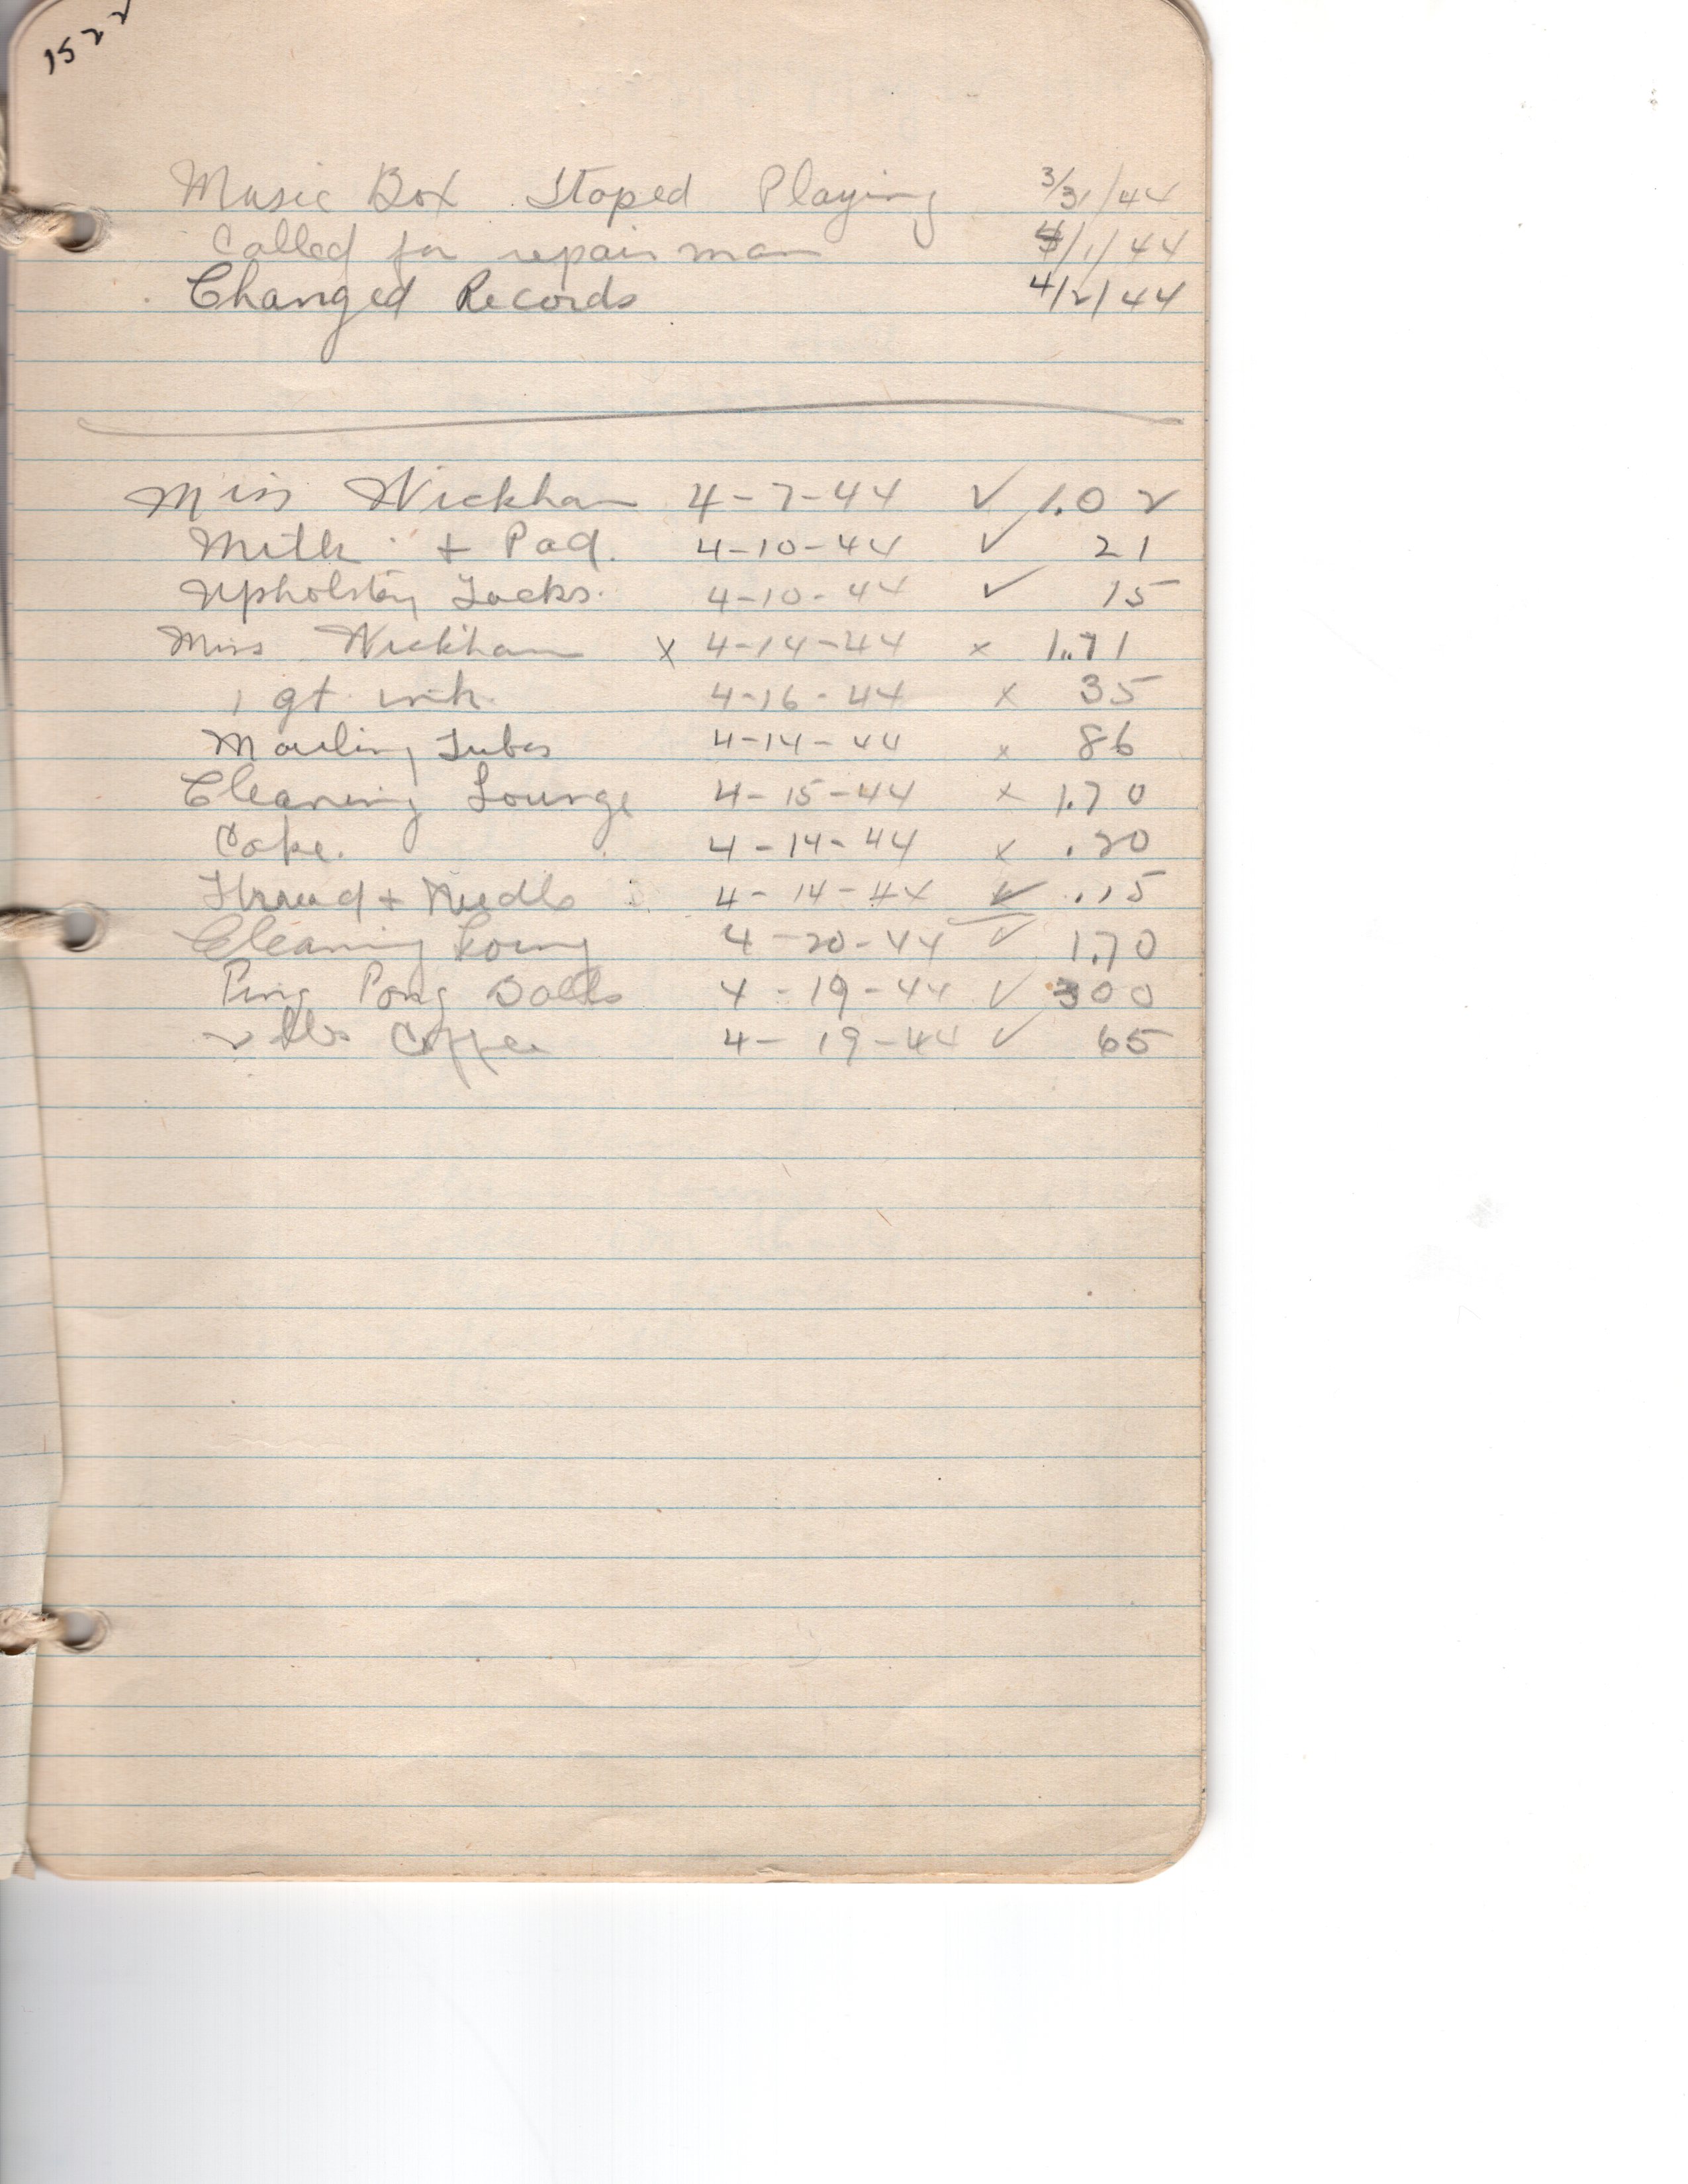 1522
Music Box Stoped Playing 3/31/44
Called for repair man 4/1/44
Changed Records 4/2/44
Miss Wickham 4-7-44 ✓ 1.02
Milk + Pad. 4-10-44 ✓ 21
Upholstry Tacks. 4-10-44 ✓ 15
Miss Wickham x 4-14-44 x 1.71
1 qt 4-16-44 x 35
Mailing Tubes 4-14-44 x 86
Cleaning Lounge 4-15-44 x 1.70
4-14-44 x .20
Thread + Needle 4-14-44 ✓ .15
Cleaning 4-20-44 ✓ 1.70
Ping Pong Balls 4-19-44 ✓ 300
2 lbs Coffee 4-19-44 ✓ 65